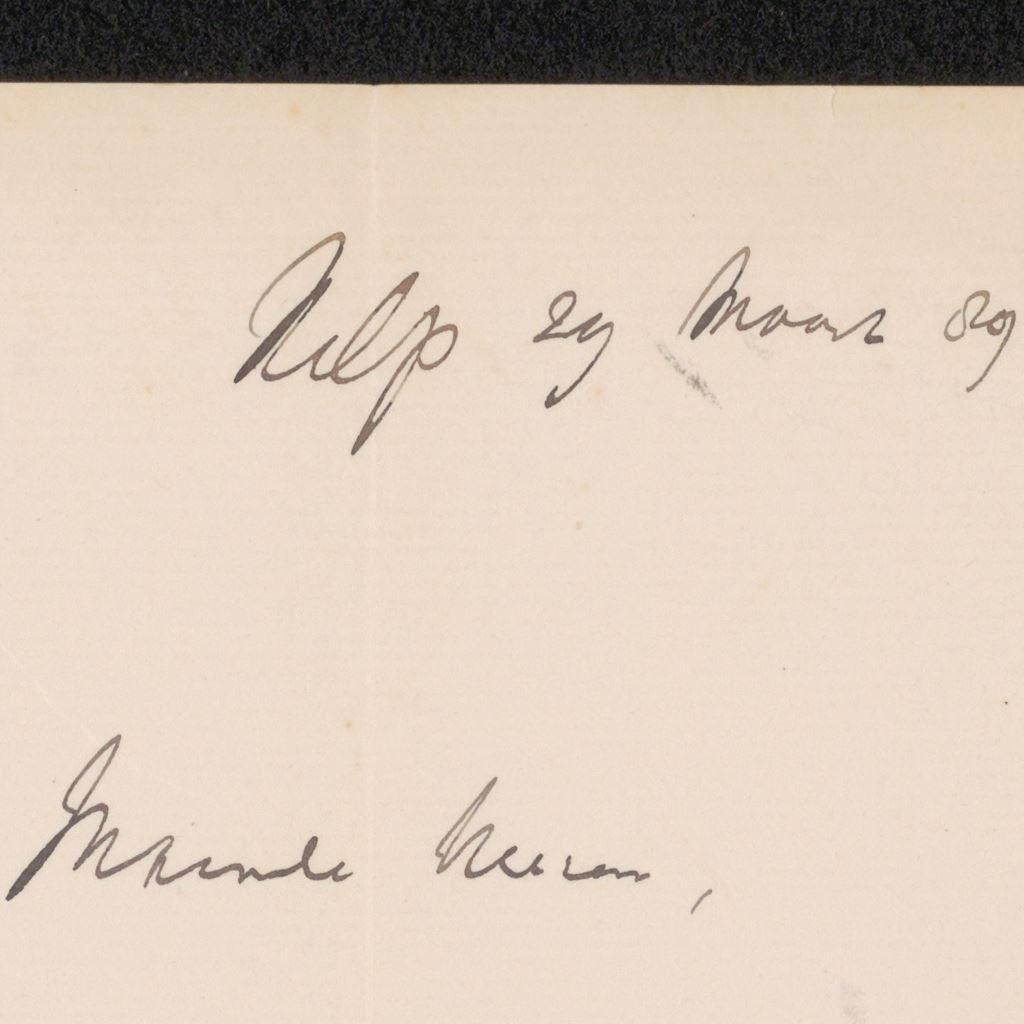 Velp 29 Maart 89
Waarde Heeren,